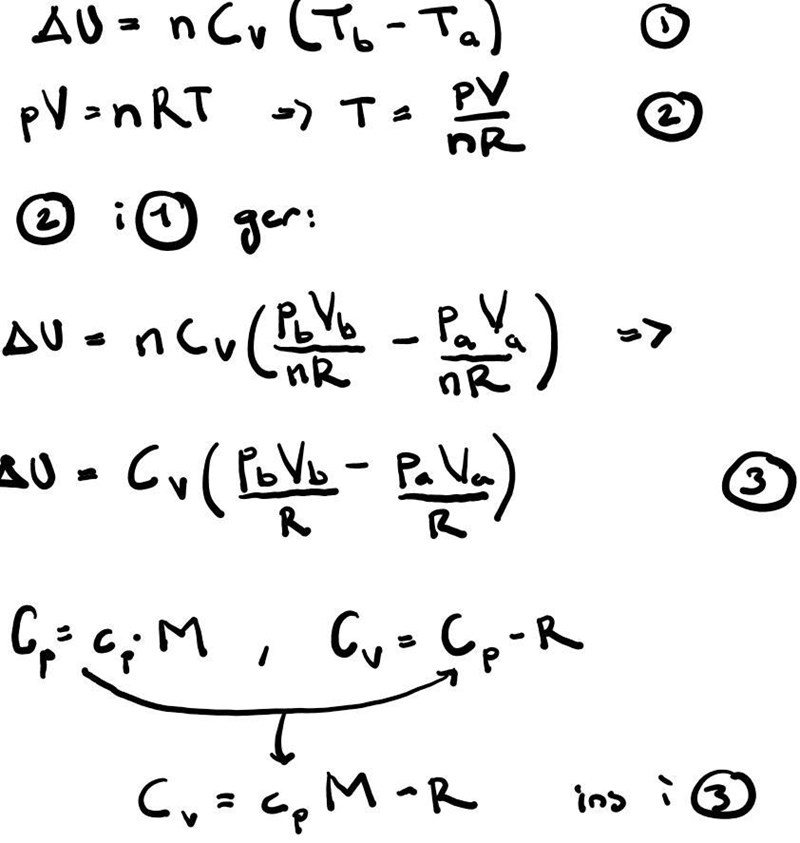 ΔU = n C_v (T_b - T_a) ①
pV = nRT => T = pV/nR ②
② i ① ger:
ΔU = n C_v (P_b V_b / nR - P_a V_a / nR) =>
ΔU = C_v (P_b V_b / R - P_a V_a / R) ③
C_p = c_p · M , C_v = C_p - R
C_v = c_p M - R ins i ③